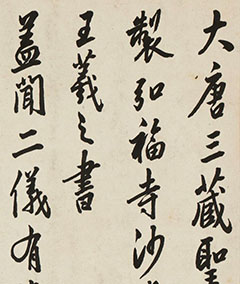 大唐三藏聖
製弘福寺沙
王羲之書
蓋聞二儀有